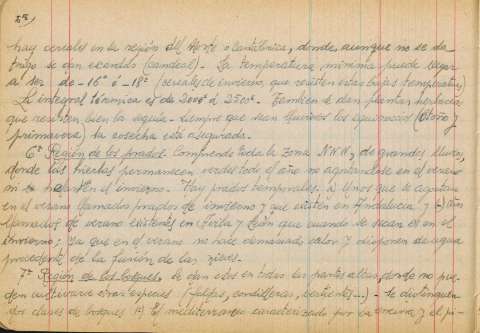 hay cereales en la región del Norte o cantábrica, donde, aunque no se da
trigo se dan escandas (candeal).- La temperatura mínima puede llegar
a ser de -16º ó -18º (cereales de invierno, que resisten estas bajas temperaturas)
La integral térmica es de 2000º á 2500º. También se dan plantas herbáceas
que resisten bien la sequía siempre que sean lluviosos los equinoccios (Otoño y
primavera) la cosecha está asegurada.
6º Región de los prados. Comprende toda la zona N.N.W., de grandes lluvias,
donde las hierbas permanecen verdes todo el año no agostándose en el verano
ni en el invierno. Hay prados temporales. A) Unos que se agostan
en el verano llamados prados de invierno y que existen en Andalucía y
llamados de verano existentes en Avila y León que cuando se secan es en el
invierno; ya que en el verano no hace demasiado calor y disponen de agua
procedente de la fusión de las nieves.
7º Región de los bosques. Se dan estos en todas las partes altas, donde no pue-
den cultivarse otras especies (cordilleras, ) - Se distinguen
dos clases de bosques A) el mediterráneo caracterizado por la encina y el pi-